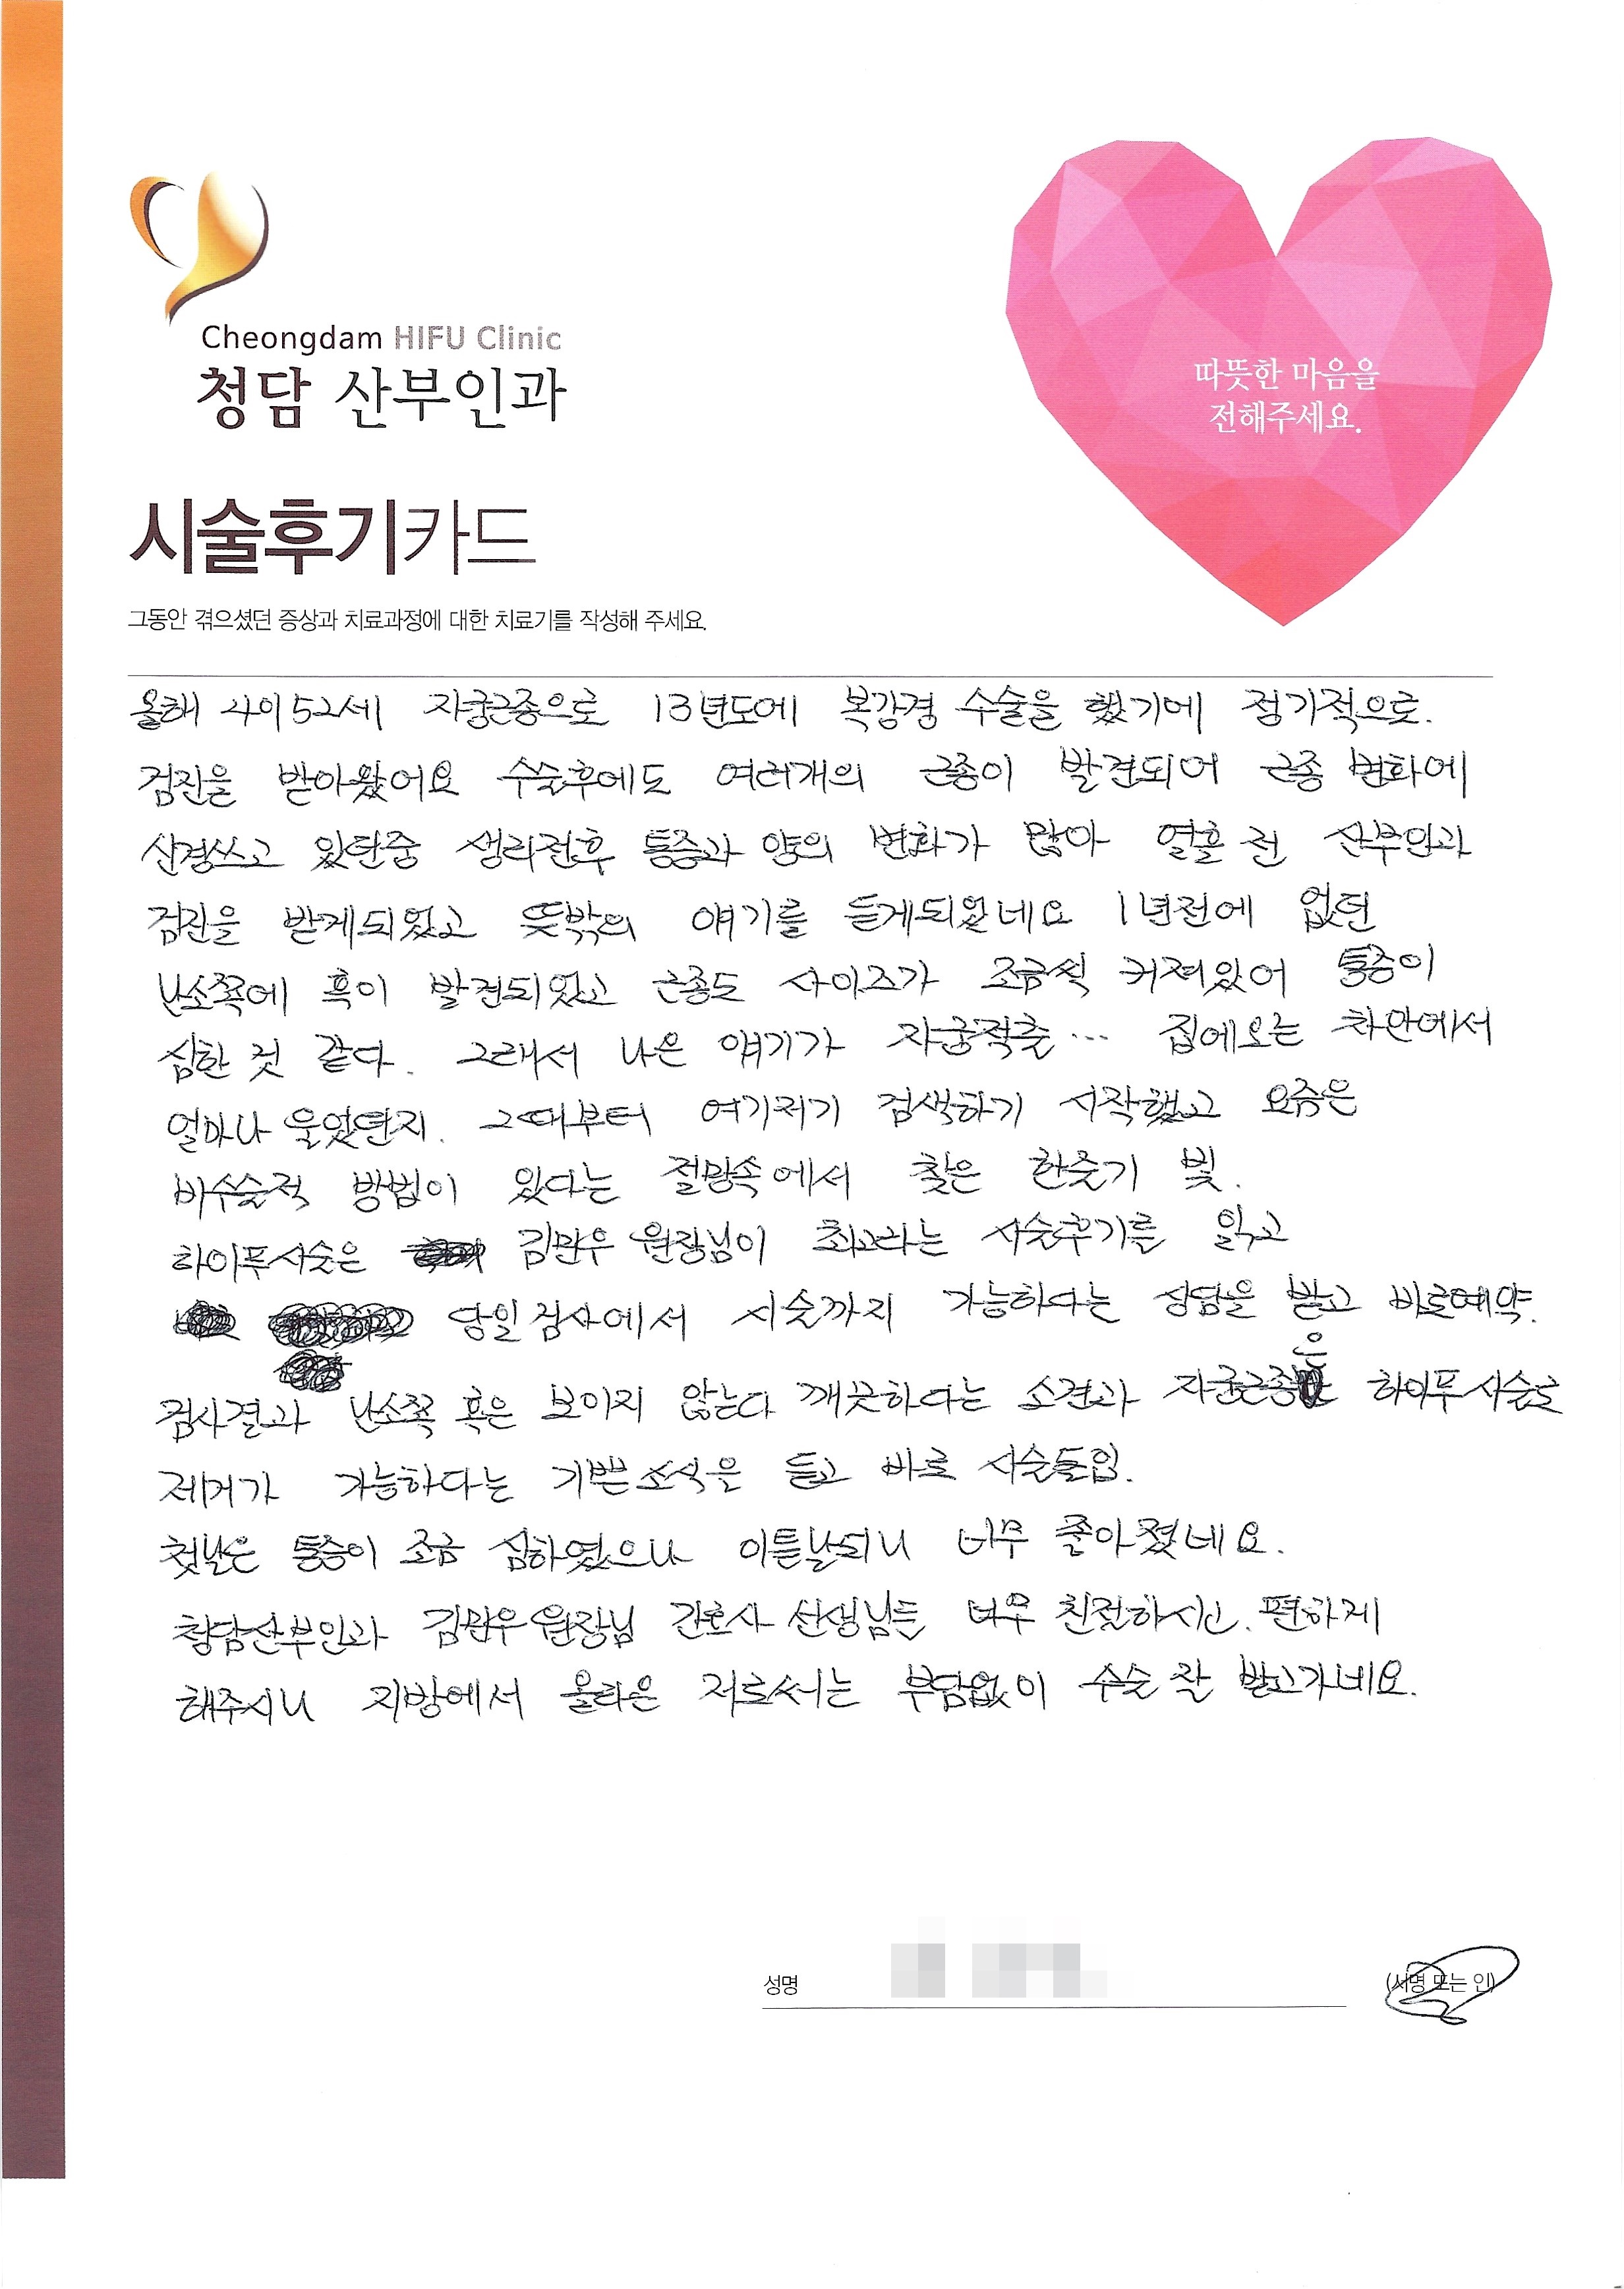 Cheongdam HIFU Clinic
청담 산부인과
따뜻한 마음을
전해주세요.
시술후기카드
그동안 겪으셨던 증상과 치료과정에 대한 치료기를 작성해 주세요.
올해 나이 52세 자궁근종으로 13년도에 복강경 수술을 했기에 정기적으로.
검진을 받아왔어요 수술후에도 여러개의 근종이 발견되어 근종 변화에
신경쓰고 있던중 생리전후 통증과 양의 변화가 많아 열흘 전 산부인과
검진을 받게되었고 뜻밖의 얘기를 듣게되었네요 1년전에 없던
난소쪽에 혹이 발견되었고 근종도 사이즈가 조금씩 커져있어 통증이
심한 것 같다. 그래서 나온 얘기가 자궁적출... 집에오는 차안에서
얼마나 울었던지. 그때부터 여기저기 검색하기 시작했고 요즘은
비수술적 방법이 있다는 절망속에서 찾은 한줄기 빛.
하이푸시술은 김민우 원장님이 최고라는 시술후기를 읽고
당일검사에서 시술까지 가능하다는 상담을 받고 바로예약.
검사결과 난소쪽 혹은 보이지 않는다 깨끗하다는 소견과 자궁근종은 하이푸시술로
제거가 가능하다는 기쁜소식을 듣고 바로 시술돌입.
첫날은 통증이 조금 심하였으나 이튿날되니 너무 좋아졌네요.
청담산부인과 김민우원장님 간호사 선생님들 너무 친절하시고. 편하게
해주시니 지방에서 올라온 저로써는 부담없이 수술 잘 받고가네요.
성명
(서명 또는 인)